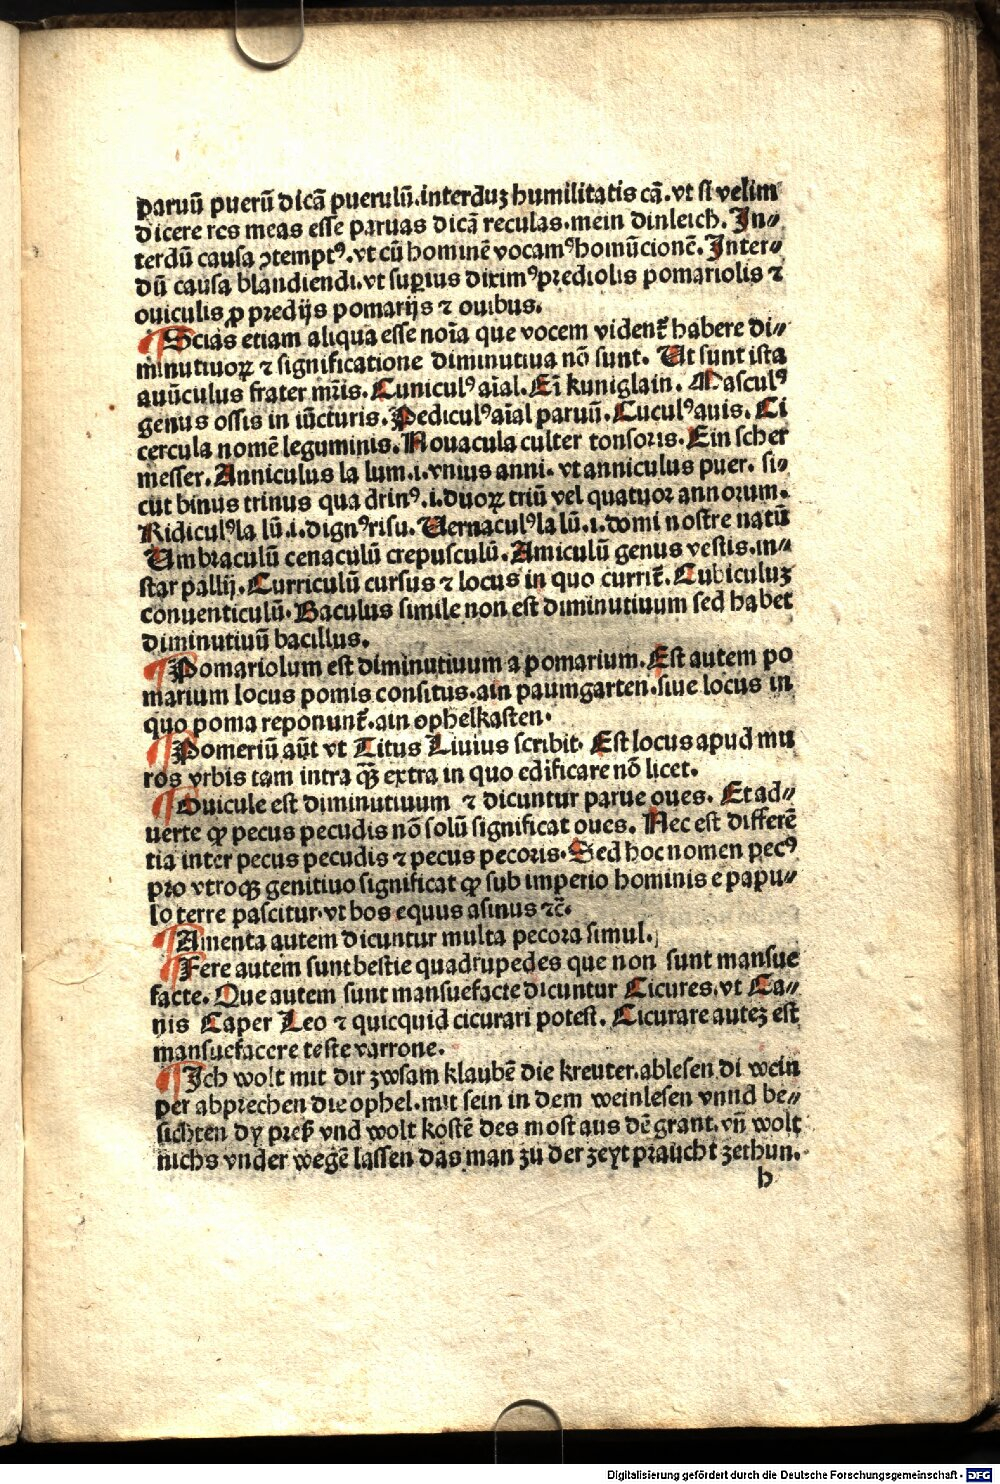 paruū puerū dicā puerulū.interduʒ humilitatis cā.vt si velim
dicere res meas esse paruas dicā reculas.mein dinleich. In⸗
terdū causa ↄtemptꝰ.vt cū hominē vocamꝰ homūcionē. Inter⸗
dū causa blandiendi.vt superius diximꝰ prediolis pomariolis ⁊
ouiculis ꝓ predijs pomarijs ⁊ ouibus.
¶ Scias etiam aliqua esse noīa que vocem vident̄ habere di⸗
minutiuoꝝ ⁊ significatione diminutiua nō sunt. Ut sunt ista
auūculus frater mr̄is. Cuniculꝰ aīal. Eī kuniglain. Masculꝰ
genus ossis in iūcturis. Pediculꝰ aīal paruū. Cuculꝰ auis. Ci
cercula nomē leguminis. Nouacula culter tonsoris. Ein scher
messer. Anniculus la lum.i.vnius anni. vt anniculus puer. si⸗
cut binus trinus quadrinꝰ.i.duoꝝ triū vel quatuor annorum.
Ridiculꝰ la lū.i.dignꝰ risu. Uernaculꝰ la lū.i.domi nostre natū
Umbraculū cenaculū crepusculū. Amiculū genus vestis.in⸗
star pallij. Curriculū cursus ⁊ locus in quo currit̄. Cubiculuʒ
conuenticulū. Baculus simile non est diminutiuum sed habet
diminutiuū bacillus.
¶ Pomariolum est diminutiuum a pomarium. Est autem po
marium locus pomis consitus.ain paumgarten.siue locus in
quo poma reponunt̄.ain ophelkasten.
¶ Pomeriū aūt vt Titus Liuius scribit. Est locus apud mu
ros vrbis tam intra qȝ̄ extra in quo edificare nō licet.
¶ Ouicule est diminutiuum ⁊ dicuntur parue oues. Et ad⸗
uerte ꝙ pecus pecudis nō solū significat oues. Nec est differē
tia inter pecus pecudis ⁊ pecus pecoris. Sed hoc nomen pecꝰ
pro vtroqȝ genitiuo significat ꝙ sub imperio hominis e papu⸗
lo terre pascitur.vt bos equus asinus ⁊c̄.
¶ Amenta autem dicuntur multa pecora simul.
¶ Fere autem sunt bestie quadrupedes que non sunt mansue
facte. Que autem sunt mansuefacte dicuntur Cicures.vt Ca⸗
nis Caper Leo ⁊ quicquid cicurari potest. Cicurare auteʒ est
mansuefacere teste varrone.
¶ Ich wolt mit dir zwsam klaubē die kreuter.ablesen di wein
per abprechen die ophel.mit sein in dem weinlesen vnnd be⸗
sichten dy preß vnd wolt kostē des most aus dē grant.vn̄ wolt
nichs vnder wegē lassen das man zu der zeyt praucht zethun.
b
Digitalisierung gefördert durch die Deutsche Forschungsgemeinschaft - DFG